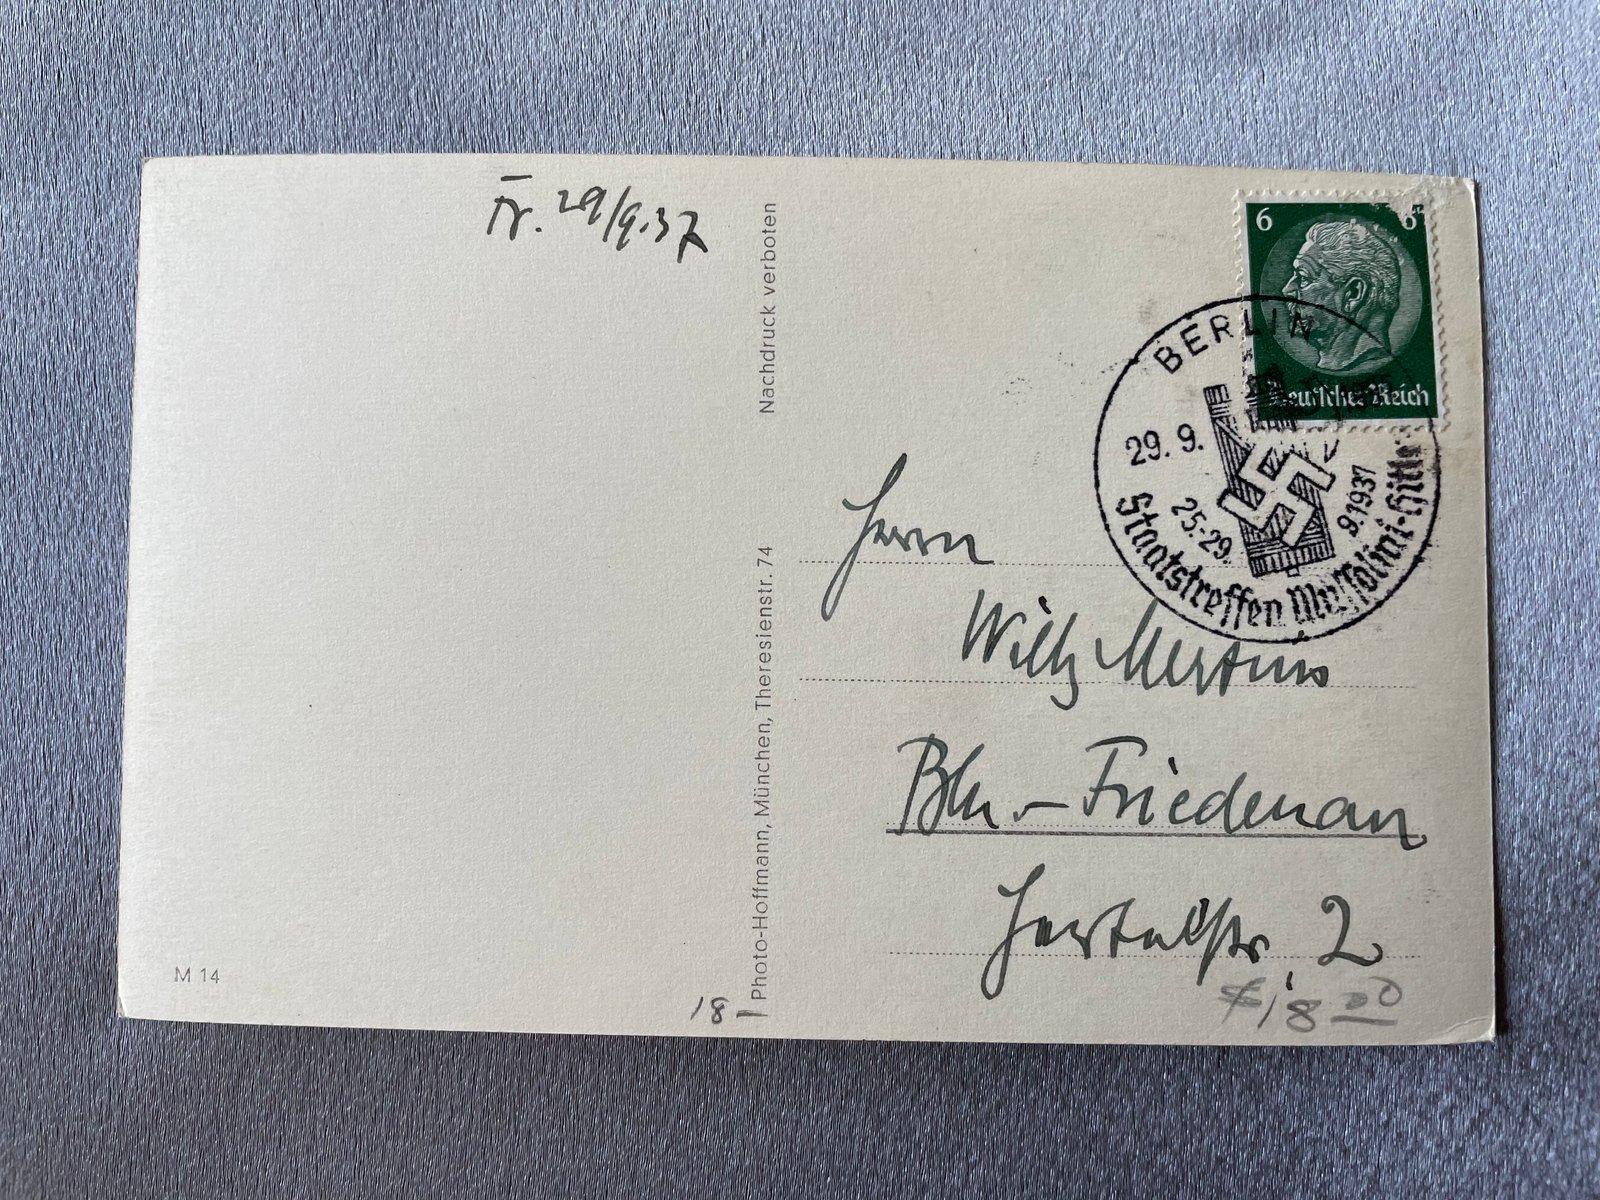 29/9.37
Nachdruck verboten
Photo-Hoffmann, München, Theresienstr. 74
M 14
18
6 6
Deutsches Reich
BERLIN
29. 9.
25.-29. 9.1937
Staatstreffen Mussolini-Hitler
Herrn
Willy Mertens
Bln.-Friedenau
2
$18 00